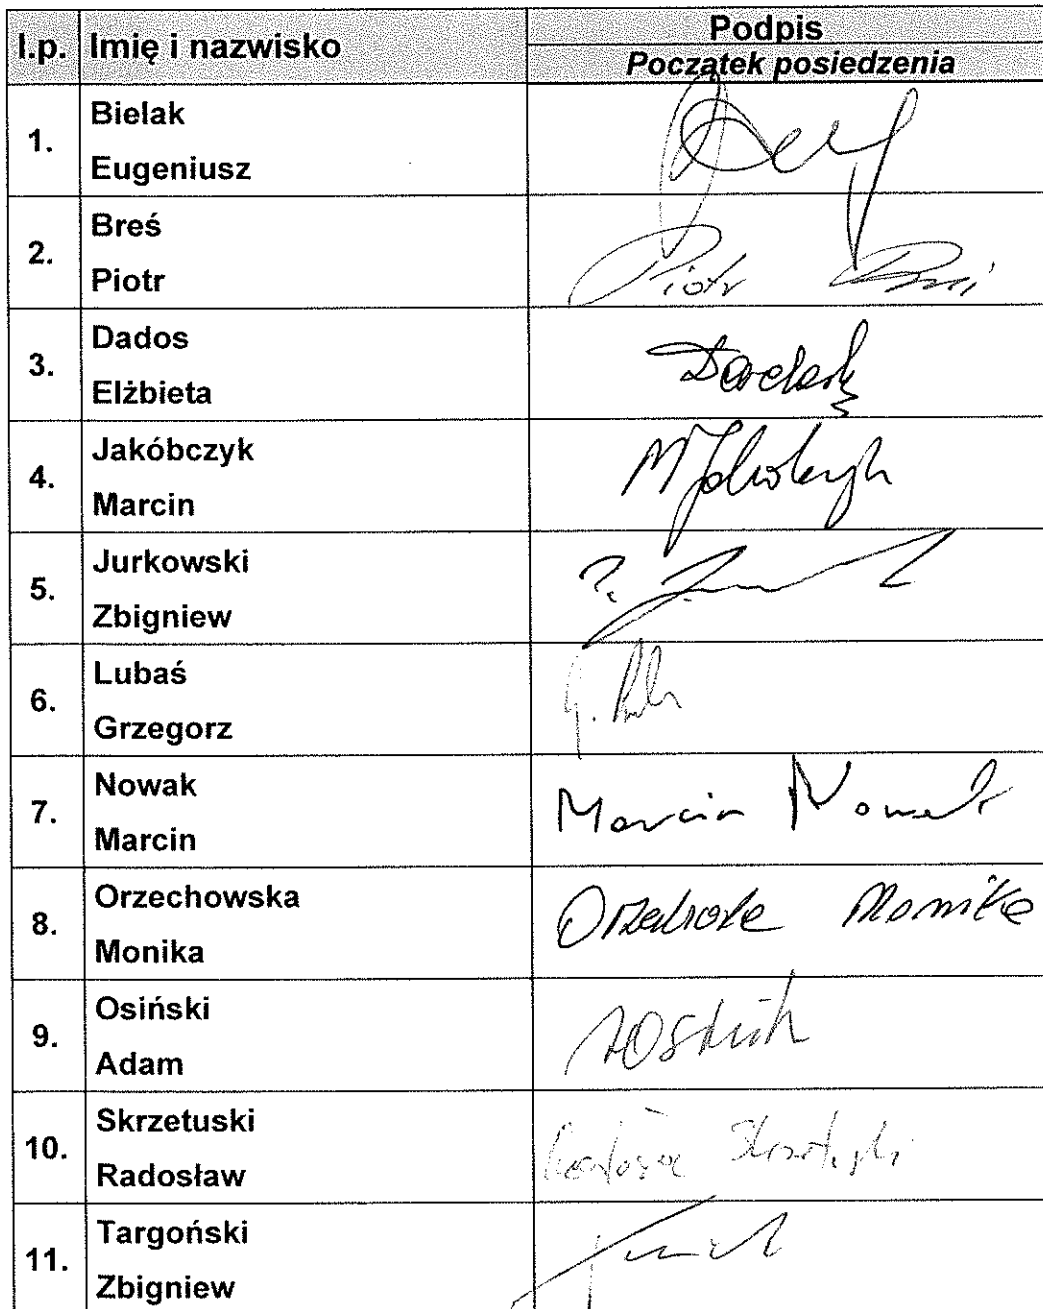 l.p. Imię i nazwisko Podpis
Początek posiedzenia
1. Bielak
Eugeniusz
2. Breś
Piotr
Piotr
3. Dados
Elżbieta
4. Jakóbczyk
Marcin
5. Jurkowski
Zbigniew
6. Lubaś
Grzegorz
7. Nowak
Marcin
Marcin Nowak
8. Orzechowska
Monika
Monika
9. Osiński
Adam
10. Skrzetuski
Radosław
11. Targoński
Zbigniew